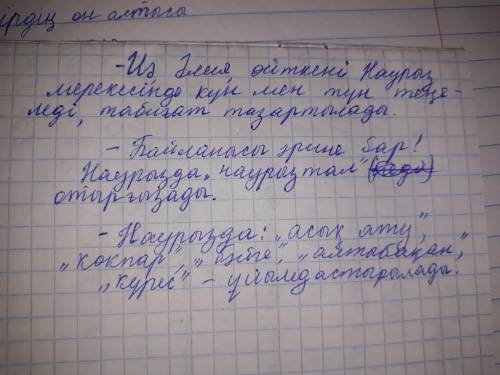 ірдің он алтысы
- Иә Әлия, өйткені Наурыз
мерекесінде күн мен түн теңе-
леді, табиғат тазартылады.
- Байланысы әрине бар!
Наурызда „наурызтал"
отырғызады.
- Наурызда: „асық ату",
„көкпар", „бәйге", „алтыбақан",
„күрес" – ұйымдастырылады.